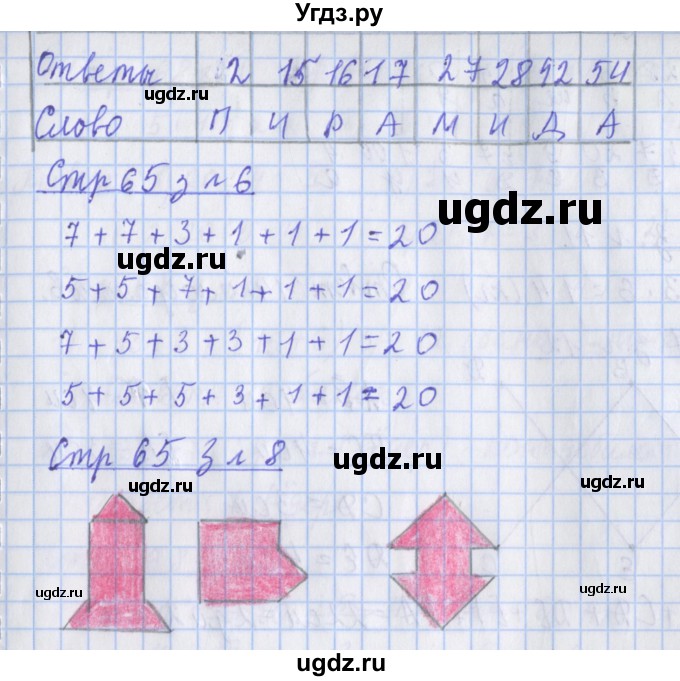 Угдз.ру
Ответы 2 15 16 17 27 28 42 54
ugdz.ru
Слово П И Р А М И Д А
Стр 65 з № 6
ugdz.ru
7 + 7 + 3 + 1 + 1 + 1 = 20
ugdz.ru
5 + 5 + 7 + 1 + 1 + 1 = 20
7 + 5 + 3 + 3 + 1 + 1 = 20
5 + 5 + 5 + 3 + 1 + 1 = 20
Стр 65 З № 8
ugdz.ru
ugdz.ru
ugdz.ru
ugdz.ru
ugdz.ru
ugdz.ru